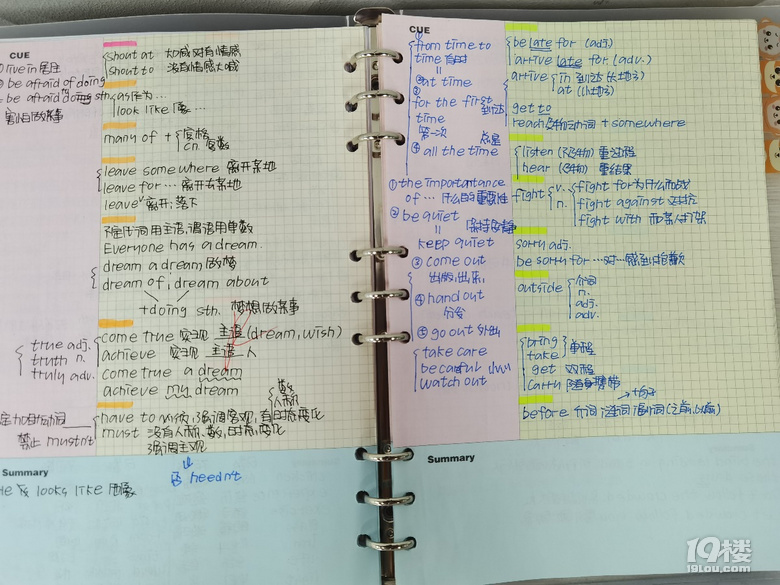 CUE
live in 居住
be afraid of doing
be afraid to doing sth.
害怕做某事
true adj.
truth n.
truly adv.
禁止 mustn't
shout at 大喊 对有情感
shout to 没有情感大喊
as 作为…
look like 像…
many of +
cn. 复数
leave somewhere 离开某地
leave for… 离开去某地
leave 离开;落下
不定代词用主语,谓语用单数
Everyone has a dream.
dream a dream 做梦
dream of, dream about
+doing sth. 梦想做某事
come true 实现 主语 (dream, wish)
achieve 实现 主语 人
come true a dream
achieve my dream
数
人称
have to 必须,强调客观,有时态变化
must 没有人称、数,时态变化
强调主观
否 needn't
Summary
He looks like 像
CUE
from time to
time 有时
=
at time
for the first
time
第一次
总是
④ all the time
① the importantance
of … 什么的重要性
② be quiet
= 保持安静
keep quiet
③ come out
出版,出来
④ hand out
分发
⑤ go out 外出
take care
be careful 小心
watch out
be late for (adj.)
arrive late for (adv.)
到达
arrive in 到达(大地方)
at (小地方)
get to
reach 及物动词 + somewhere
listen (不及物) 重过程
hear (及物) 重结果
fight v. n.
fight for 为什么而战
fight against 对抗
fight with 和某人打架
sorry adj.
be sorry for … 对…感到抱歉
outside 介词
n.
adj.
adv.
bring
take 单程
get 双程
carry 随身携带
+句子
before 介词 连词 副词 (之前,以前)
Summary
19楼
19lou.com